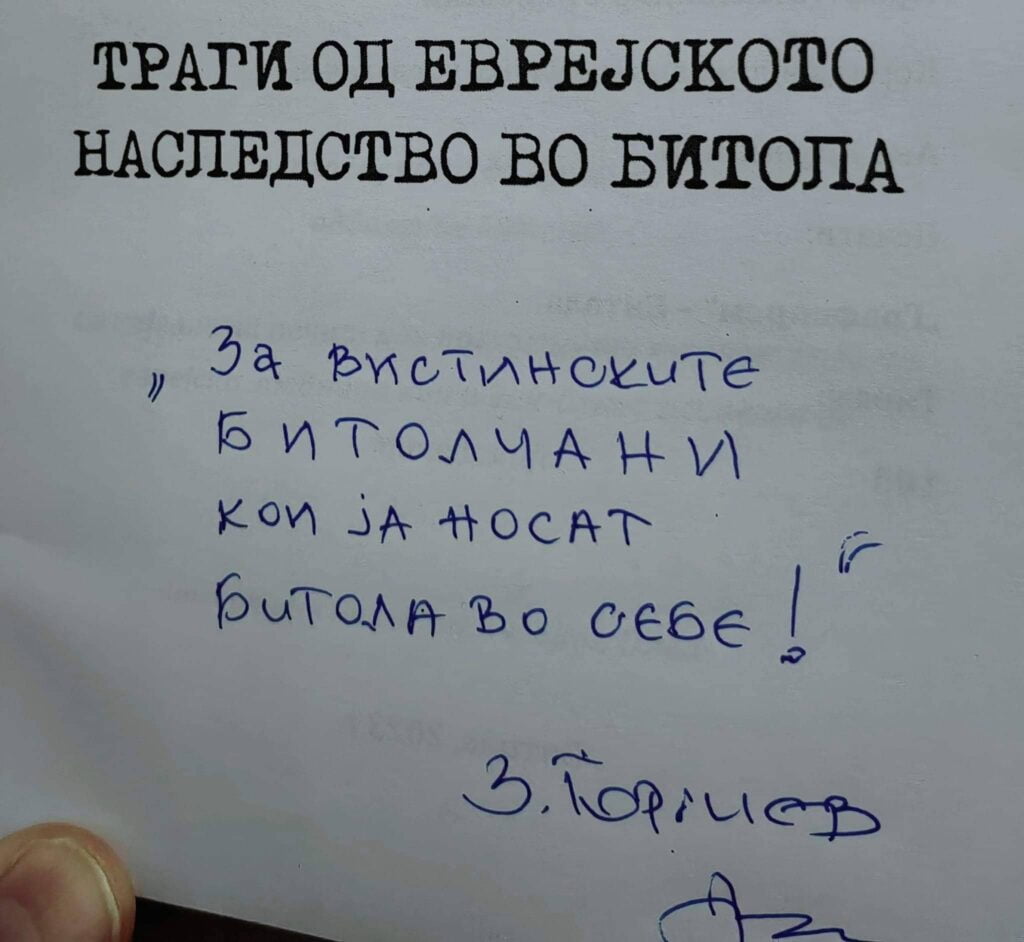 ТРАГИ ОД ЕВРЕЈСКОТО
НАСЛЕДСТВО ВО БИТОЛА
„За вистинските
БИТОЛЧАНИ
кои ја носат
Битола во себе!“
З.